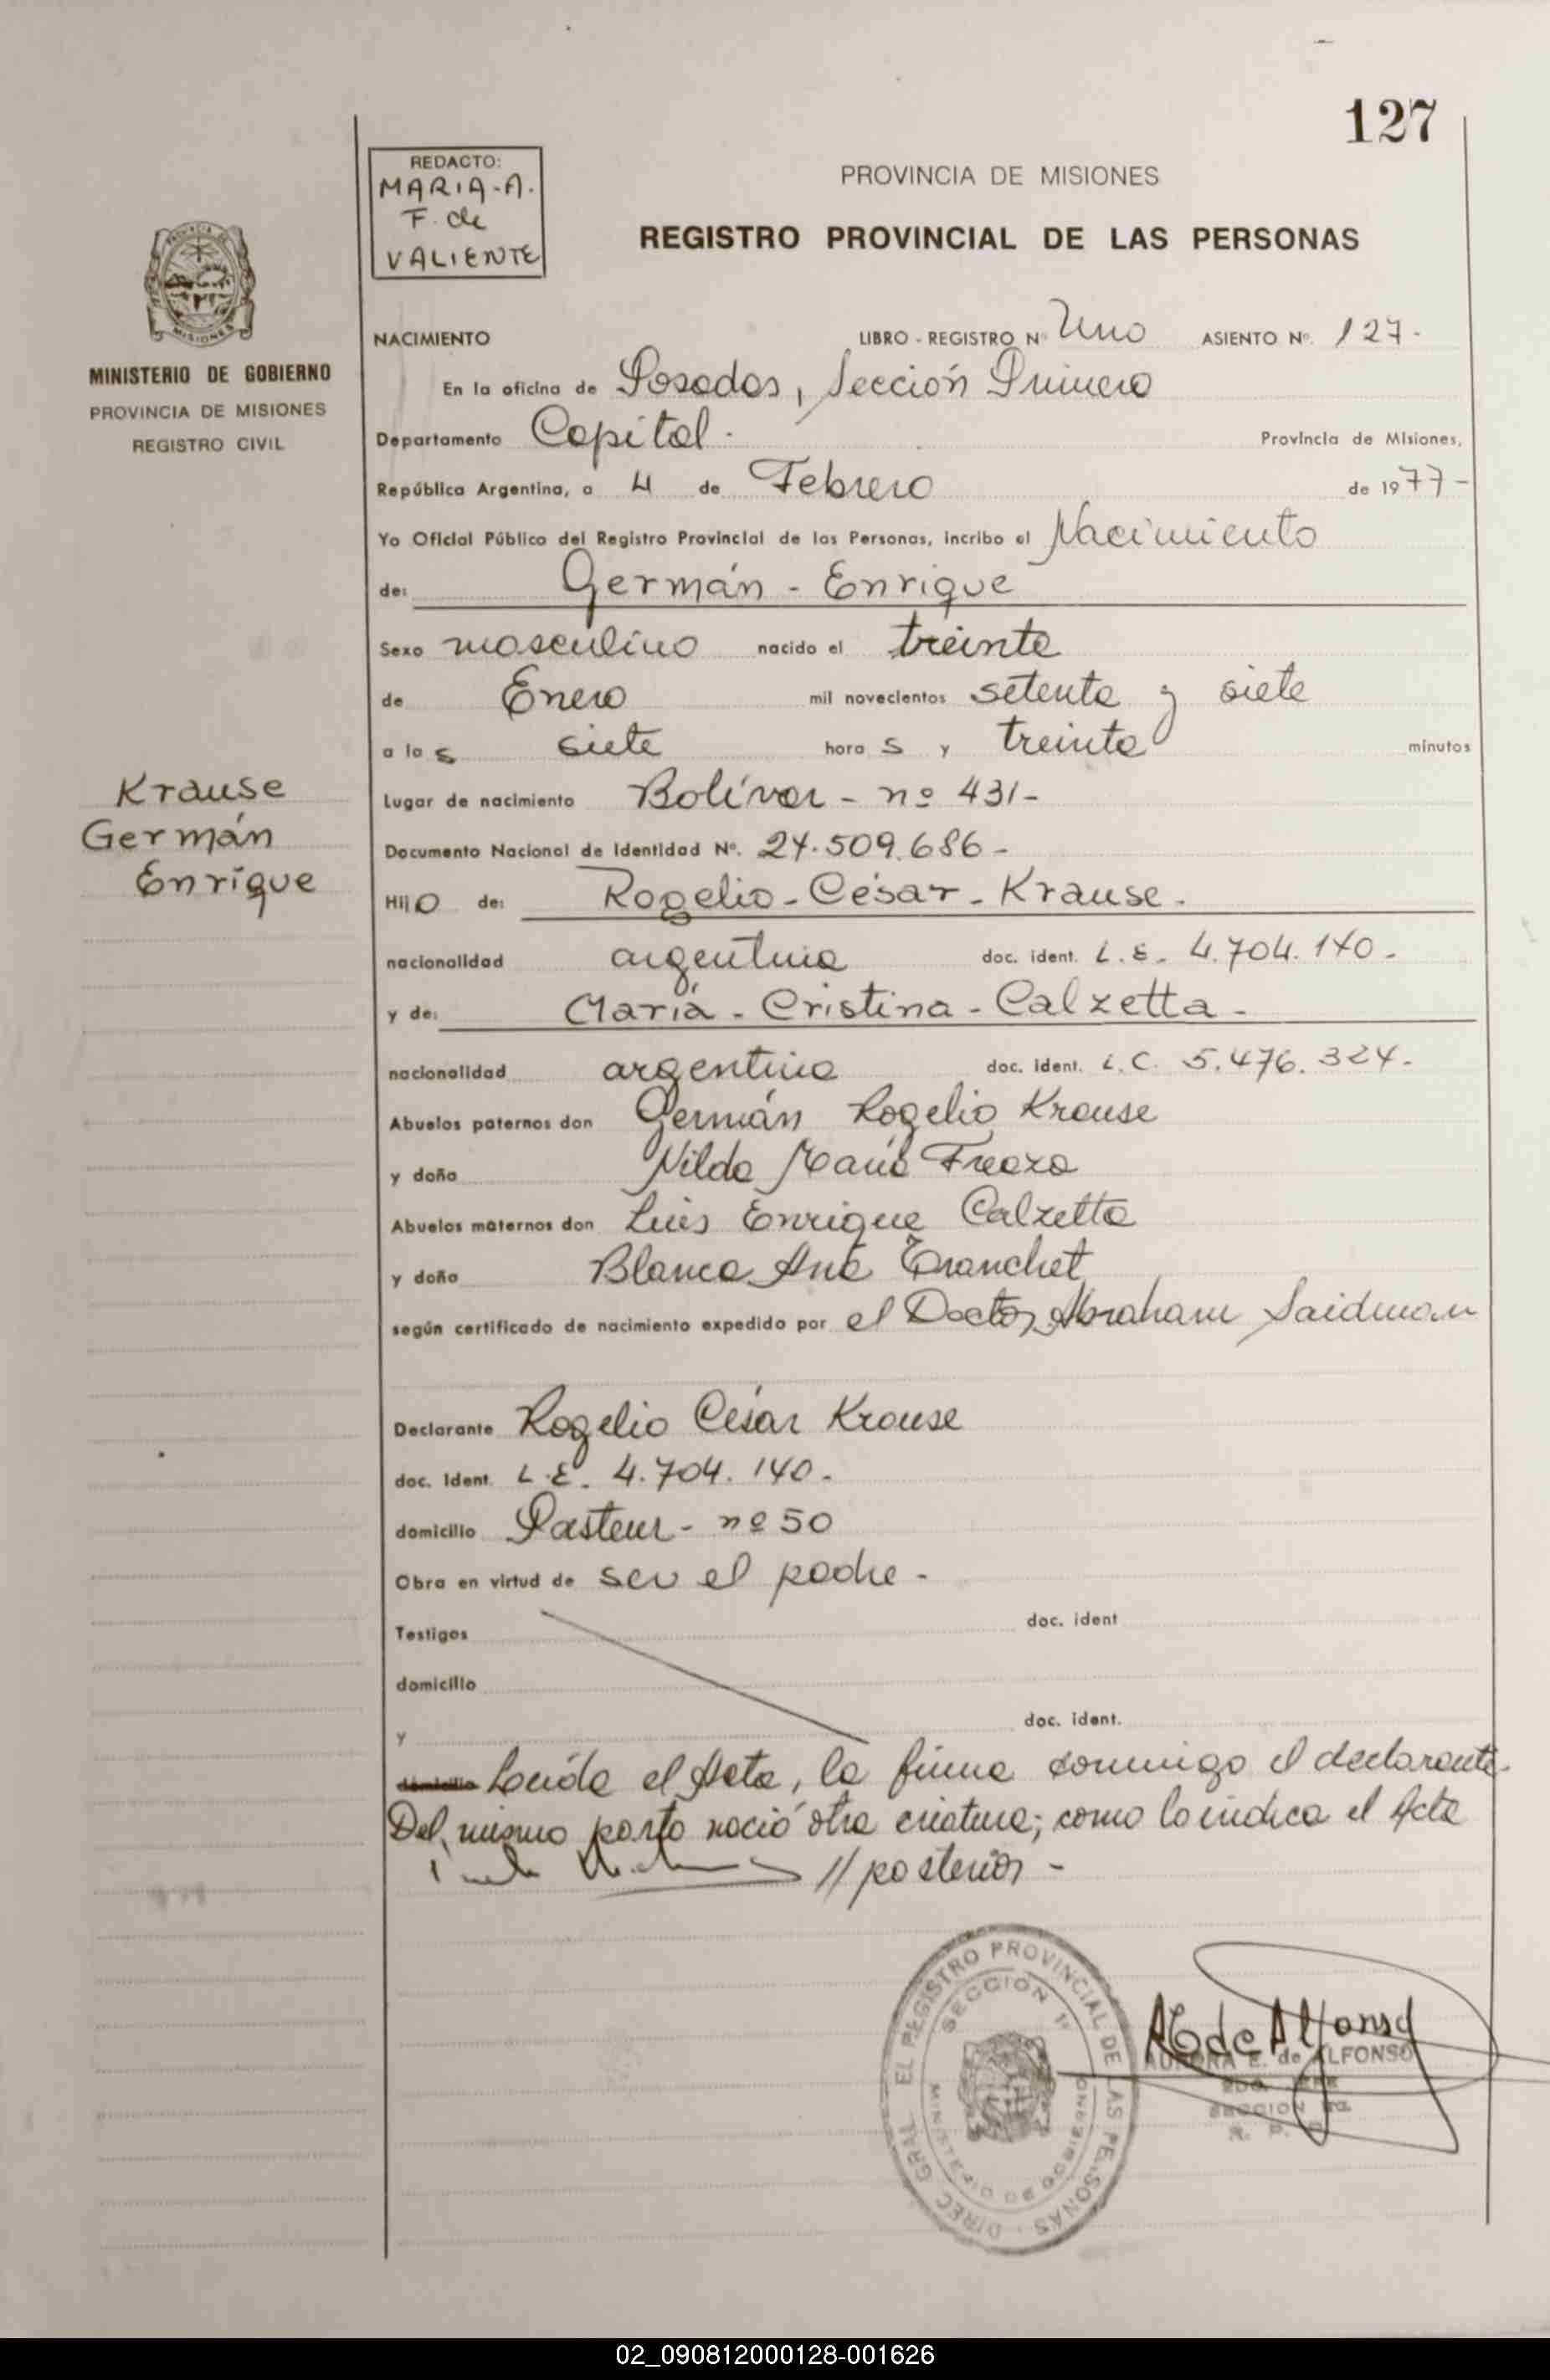 127
REDACTO:
MARIA-A.
F. de
VALIENTE
PROVINCIA DE MISIONES
REGISTRO PROVINCIAL DE LAS PERSONAS
MISIONES
MINISTERIO DE GOBIERNO
PROVINCIA DE MISIONES
REGISTRO CIVIL
NACIMIENTO LIBRO - REGISTRO Nº Uno ASIENTO Nº. 127-
En la oficina de Posadas, Sección Primera
Departamento Capital- Provincia de Misiones,
República Argentina, a 4 de Febrero de 1977-
Yo Oficial Público del Registro Provincial de las Personas, incribo el Nacimiento
de: Germán - Enrique
Sexo masculino nacido el treinta
de Enero mil novecientos setenta y siete
a las siete horas y treinta minutos
Krause
Germán
Enrique
Lugar de nacimiento Bolívar - nº 431-
Documento Nacional de Identidad Nº. 24.509.686-
Hijo de: Rogelio-César-Krause-
nacionalidad argentina doc. ident. L.E. 4.704.140-
y de: María-Cristina-Calzetta-
nacionalidad argentina doc. ident. L.C. 5.476.324-
Abuelos paternos don Germán Rogelio Krause
y doña Nilda María Freaza
Abuelos maternos don Luis Enrique Calzetta
y doña Blanca Ana Tranchet
según certificado de nacimiento expedido por el Doctor Abraham Saidman
Declarante Rogelio César Krause
doc. Ident. L.E. 4.704.140-
domicilio Pasteur- nº 50
Obra en virtud de ser el padre-
Testigos doc. ident
domicilio
y doc. ident.
Leída el Acta, la firma conmigo el declarante-
Del mismo parto nació otra criatura; como lo indica el Acta
// posterior-
DIREC. GRAL. EL REGISTRO PROVINCIAL DE LAS PERSONAS
SECCION 1ª
MINISTERIO DE GOBIERNO
A E de Alfonso
AURORA E. de ALFONSO
SECCION 1ra.
02_090812000128-001626